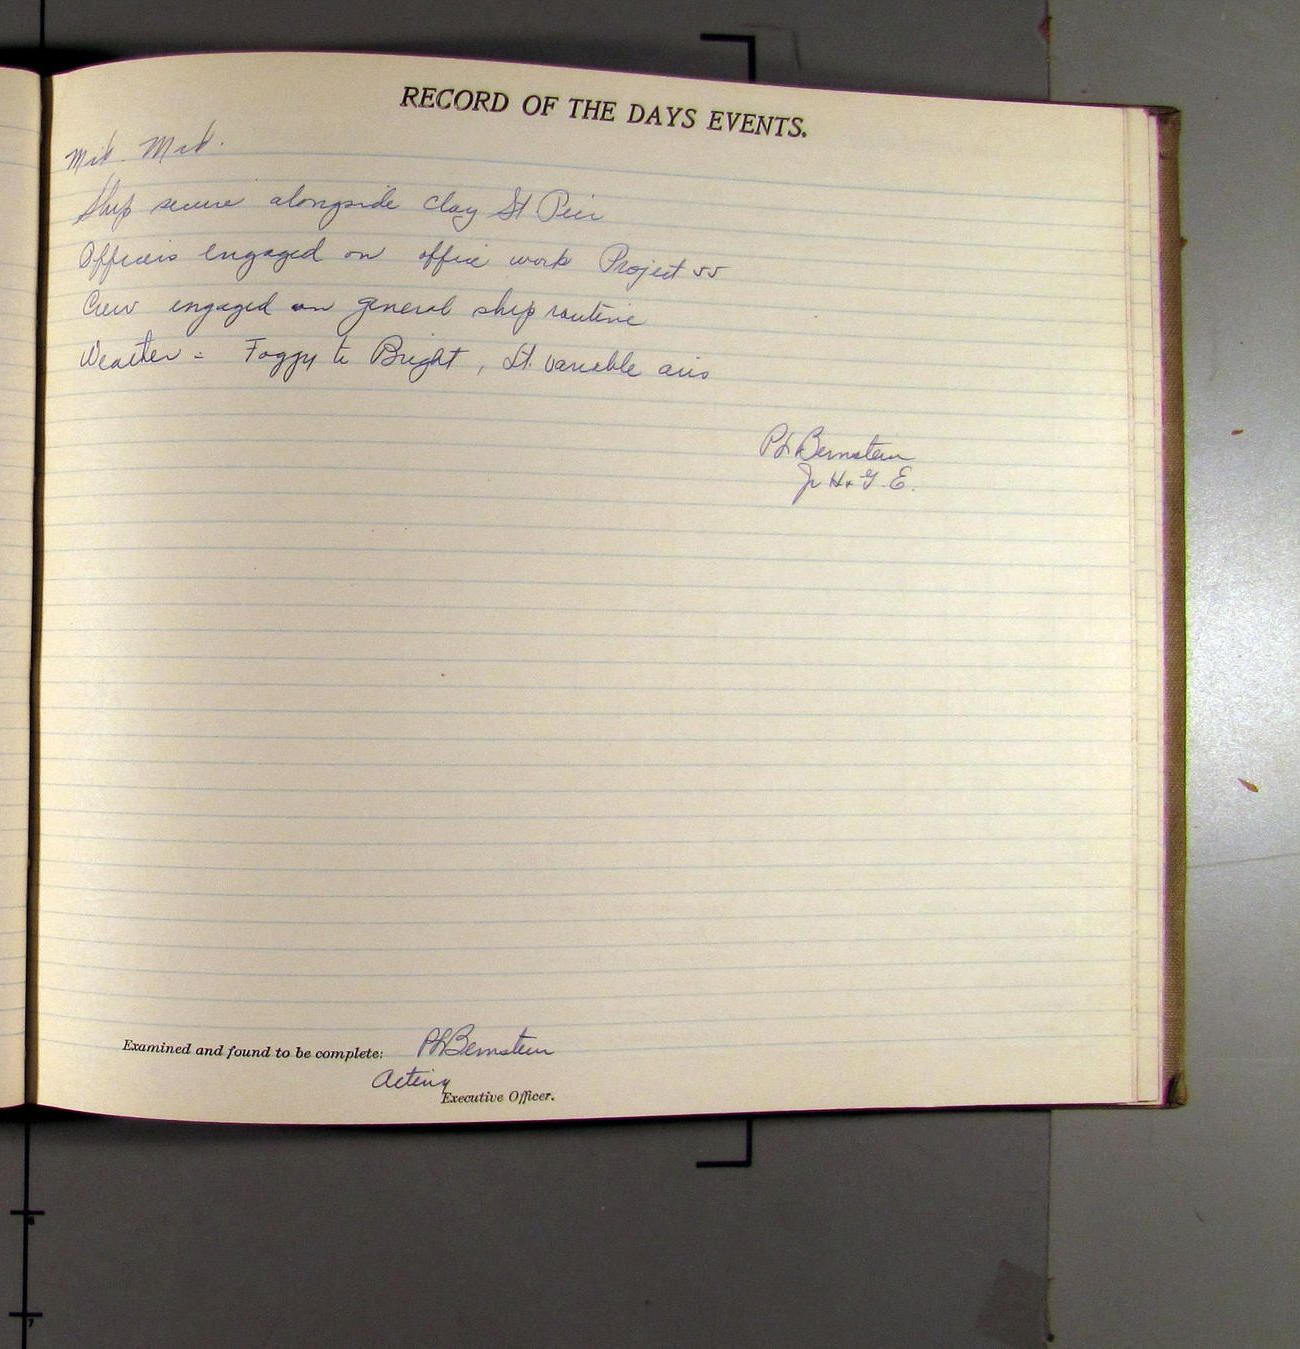 RECORD OF THE DAYS EVENTS.
Mid. Mid.
Ship secure alongside Clay St Pier
Officers engaged on office work Project 55
Crew engaged on general ship routine
Weather = Foggy to Bright, Lt. variable airs
P L Bernstein
Jr H & G. E.
Examined and found to be complete: P L Bernstein
Acting
Executive Officer.